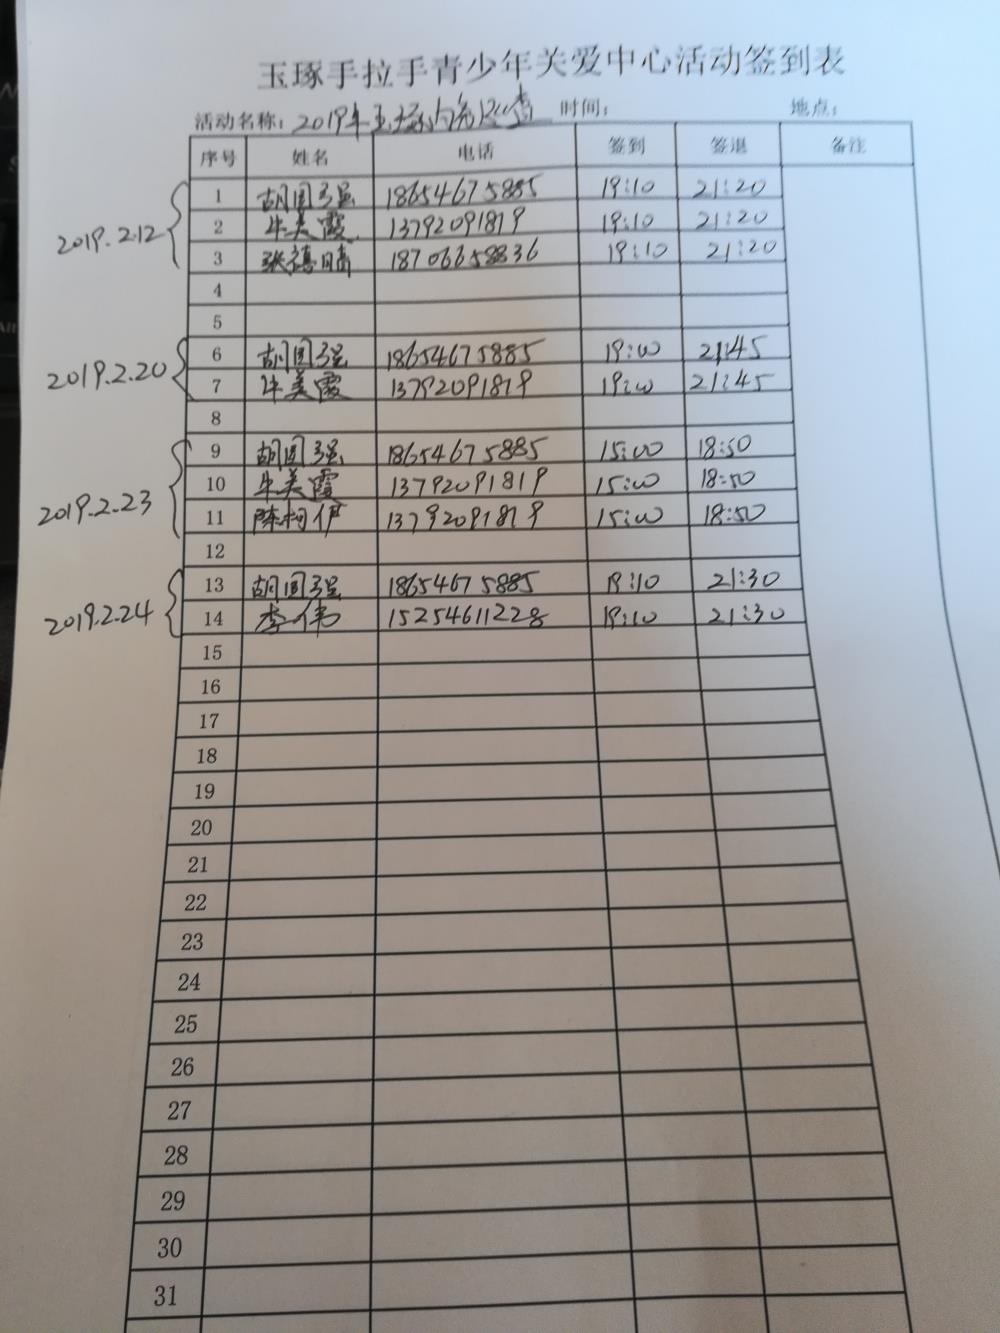 玉琢手拉手青少年关爱中心活动签到表
活动名称: 2019年玉琢 时间: 地点:
序号 姓名 电话 签到 签退 备注
2019.2.12
1 胡国强 18654675885 19:10 21:20
2 牛美霞 13792091819 19:10 21:20
3 张禧晴 18706658836 19:10 21:20
4
5
2019.2.20
6 胡国强 18654675885 19:00 21:45
7 牛美霞 13792091819 19:00 21:45
8
2019.2.23
9 胡国强 18654675885 15:00 18:50
10 牛美霞 13792091819 15:00 18:50
11 陈柯伊 13792091819 15:00 18:50
12
2019.2.24
13 胡国强 18654675885 19:10 21:30
14 李伟 15254611228 19:10 21:30
15
16
17
18
19
20
21
22
23
24
25
26
27
28
29
30
31